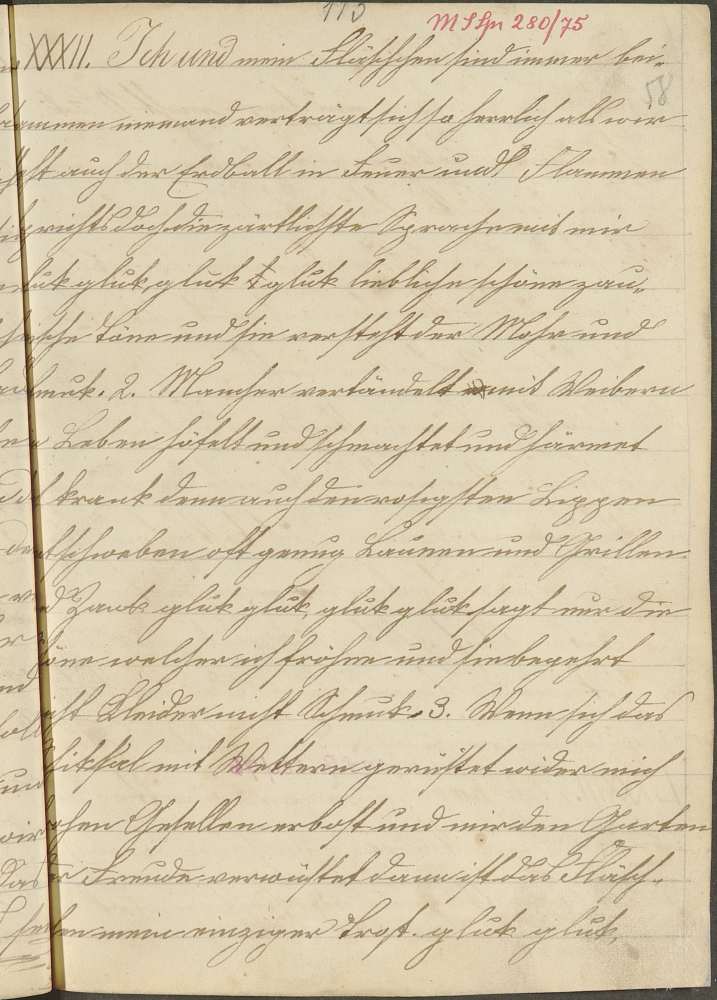 113
MSSpr 280/75
58
XXXII. Ich und mein Fläschchen sind immer bei-
sammen niemand verträgt sich so herrlich als wir
steht auch der Erdball in Feuer und Flammen
sprichts doch die zärtlichste Sprache mit mir
gluk gluk, gluk gluk liebliche schöne zau-
brische Töne und sie versteht der Mohr und
Kalmuk. 2. Mancher vertändelt mit Weibern
sein Leben höfelt und schmachtet und härmet
sich krank denn auch den rosigsten Lippen
entschweben oft genug Launen und Grillen
und Zank gluk gluk, gluk gluk sagt nur die
Schöne welcher ich fröhne und sie begehrt
nicht Kleider nicht Schmuk. 3. Wenn sich das
Schiksal mit Wettern gerüstet wider mich
rohen Gesellen erbost und mir den Garten
der Freude verwüstet dann ist das Fläsch-
chen mein einziger Trost. gluk gluk,